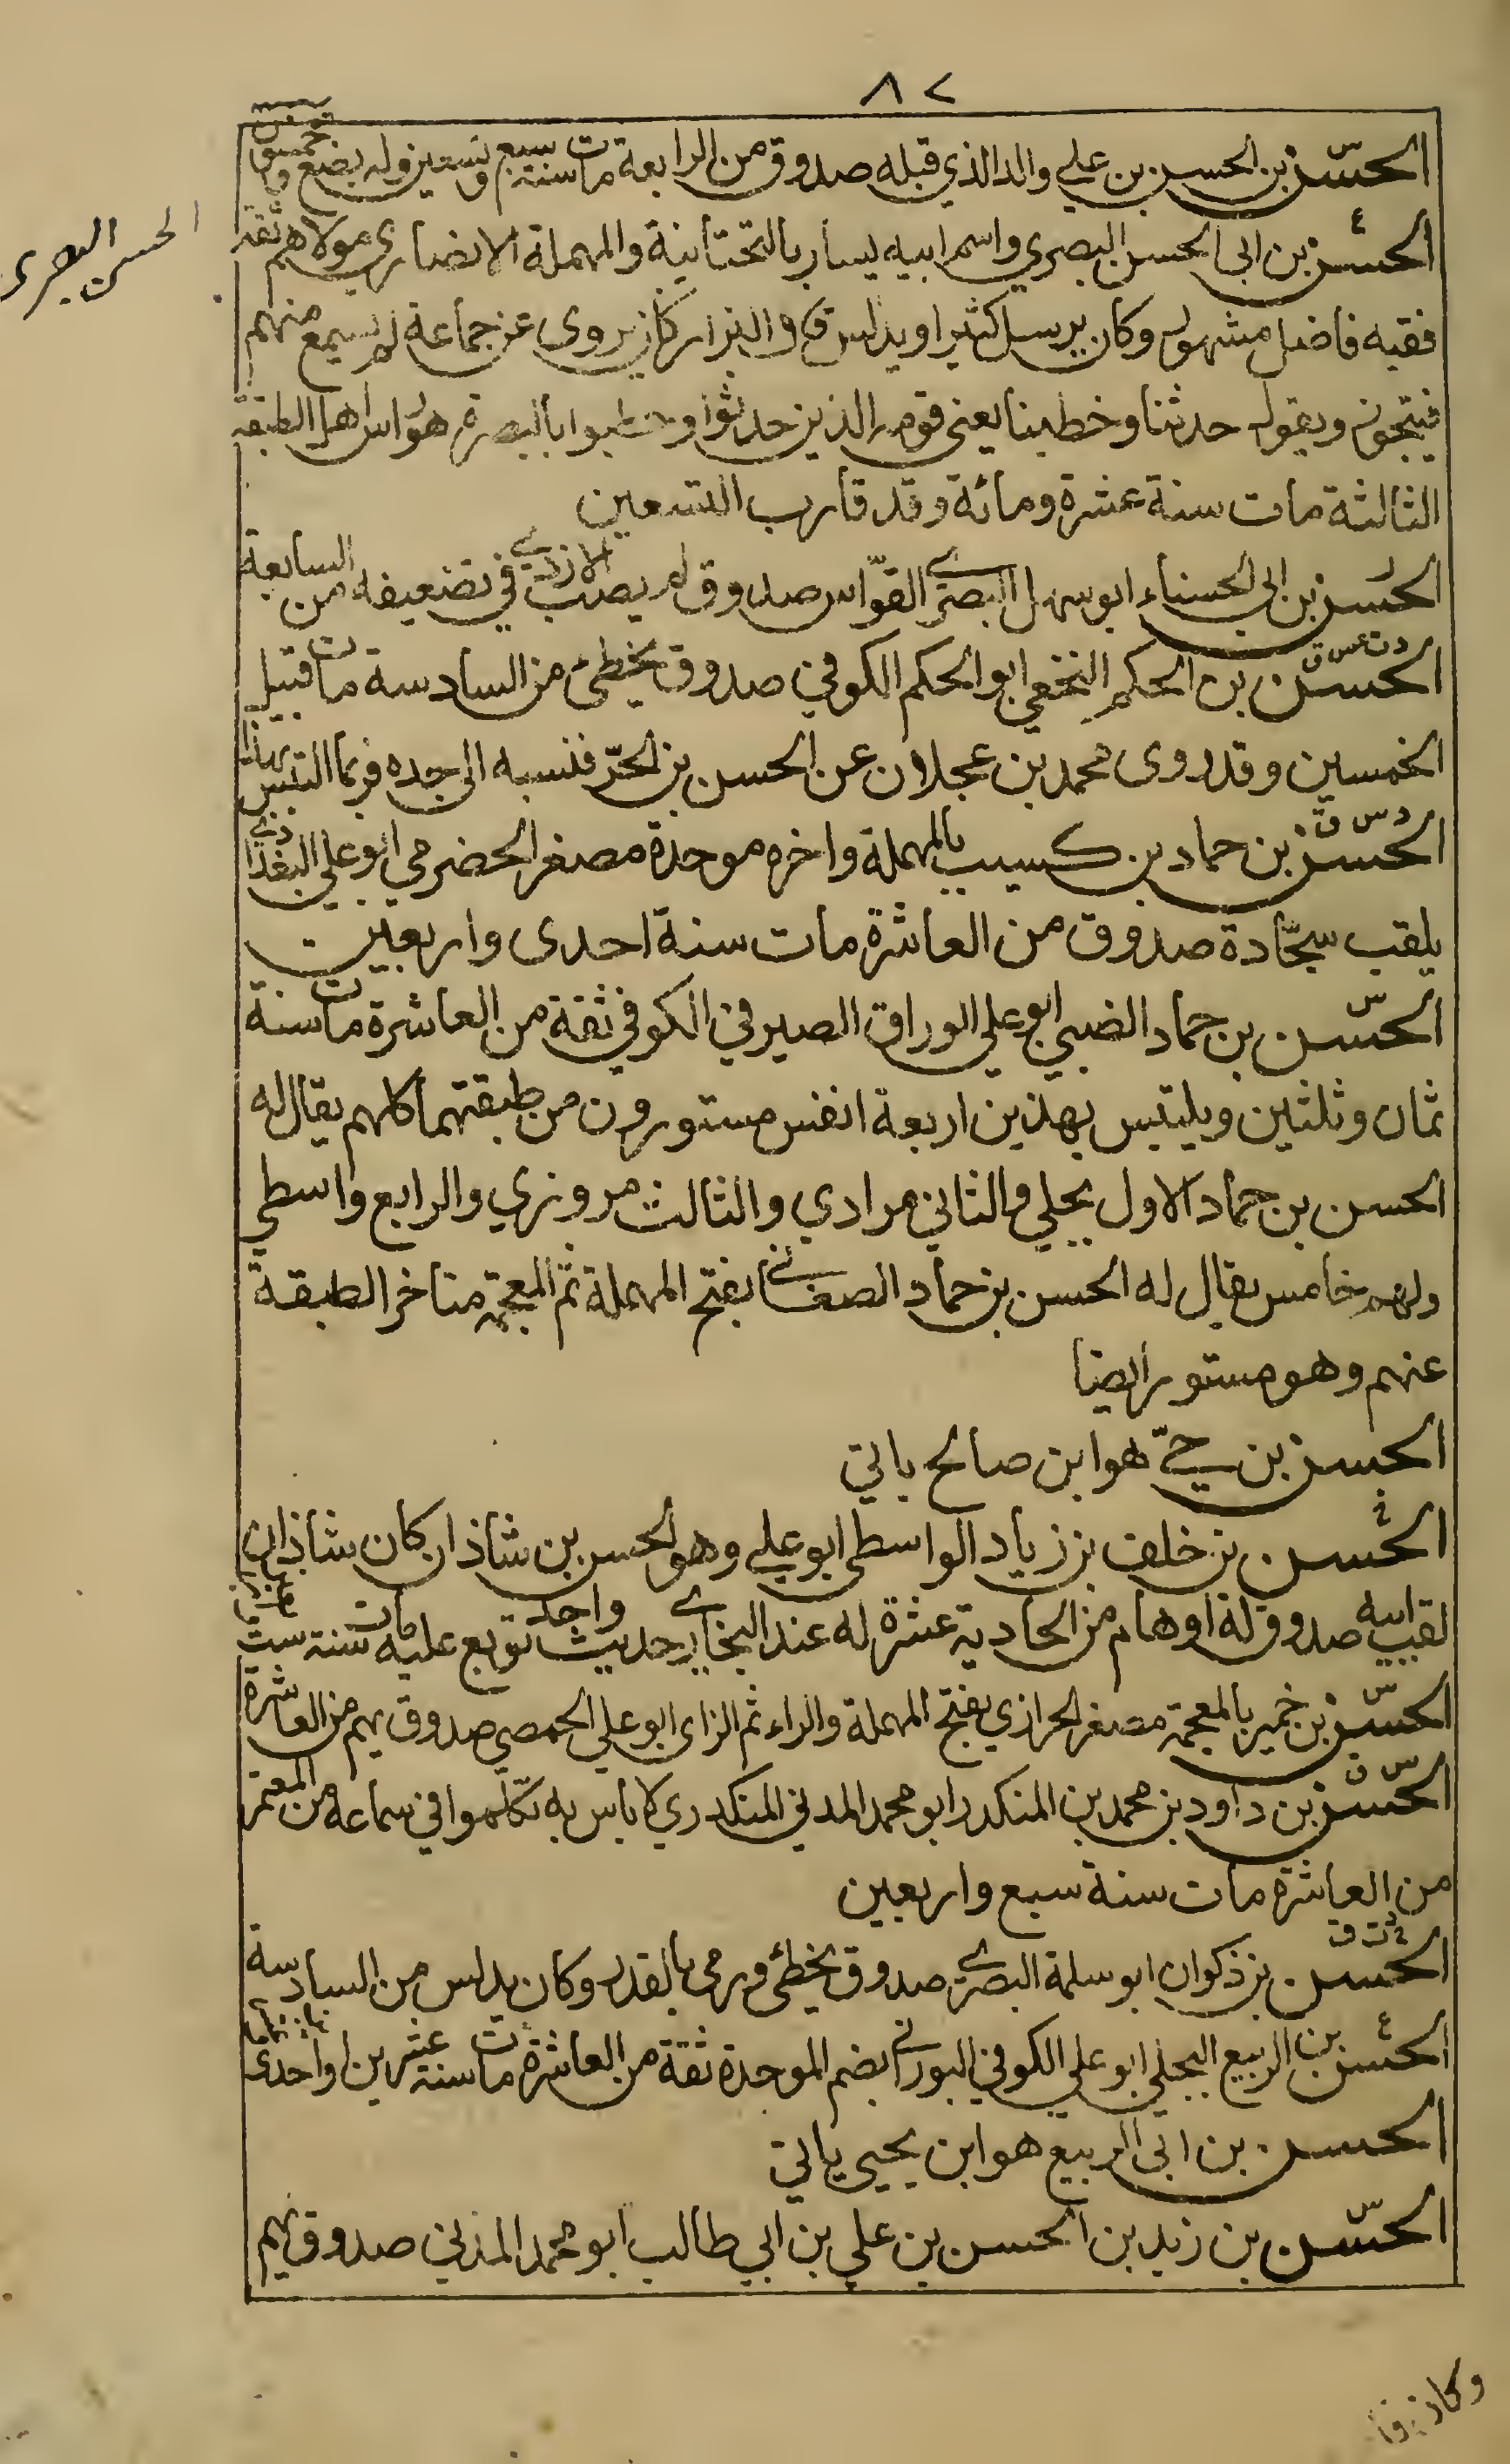 ٨٢
الحسن بن الحسن بن علي والد الذي قبله صدوق من الرابعة مات سنة سبع وتسعين وله بضع وخمسون
س
الحسن البصري
الحسن بن ابي الحسن البصري واسم ابيه يسار بالتحتانية والمهملة الانصاري مولاهم ثقة
ع
فقيه فاضل مشهور وكان يرسل كثيرا ويدلس قال البزار كان يروي عن جماعة لم يسمع منهم
فيتجوز ويقول حدثنا وخطبنا يعني قومه الذين حدثوا وخطبوا بالبصرة هو راس اهل الطبقة
الثالثة مات سنة عشرة ومائة وقد قارب التسعين
الحسن بن ابي الحسناء ابو سهل البصري القوّاس صدوق لم يصب الازدي في تضعيفه من السابعة
د ت عس ق
الحسن بن الحكم النخعي ابو الحكم الكوفي صدوق يخطئ من السادسة مات قبيل
الخمسين وقد روى محمد بن عجلان عن الحسن بن الحرّ فنسبه الى جده فربما التبس بهذا
د س ق
الحسن بن حماد بن كسيب بالمهملة واخره موحدة مصغر الحضرمي ابو علي البغدادي
يلقب سجّادة صدوق من العاشرة مات سنة احدى واربعين
س
الحسن بن حماد الضبي ابو علي الوراق الصيرفي الكوفي ثقة من العاشرة مات سنة
ثمان وثلثين ويلتبس بهذين اربعة انفس مستورون من طبقتهما كلهم يقال له
الحسن بن حماد الاول بجلي والثاني مرادي والثالث مروزي والرابع واسطي
ولهم خامس يقال له الحسن بن حماد الصغاني بفتح المهملة ثم المعجمة متاخر الطبقة
عنهم وهو مستور ايضا
الحسن بن حيّ هو ابن صالح ياتي
خ
الحسن بن خلف بن زياد الواسطي ابو علي وهو الحسن بن شاذان كان شاذان
لقب ابيه صدوق له اوهام من الحادية عشرة له عند البخاري حديث واحد توبع عليه مات سنة ست
س
الحسن بن خمير بالمعجمة مصغر الحرازي بفتح المهملة والراء ثم الزاي ابو علي الحمصي صدوق يهم من العاشرة
س ق
الحسن بن داود بن محمد بن المنكدر ابو محمد المدني المنكدري لا باس به تكلموا في سماعه من المعتمر
من العاشرة مات سنة سبع واربعين
خ د ت ق
الحسن بن ذكوان ابو سلمة البصري صدوق يخطئ ورمي بالقدر وكان يدلس من السادسة
ع
الحسن بن الربيع البجلي ابو علي الكوفي البوراني بضم الموحدة ثقة من العاشرة مات سنة عشرين او احدى
الحسن بن ابي الربيع هو ابن يحيى ياتي
س
الحسن بن زيد بن الحسن بن علي بن ابي طالب ابو محمد المدني صدوق يهم